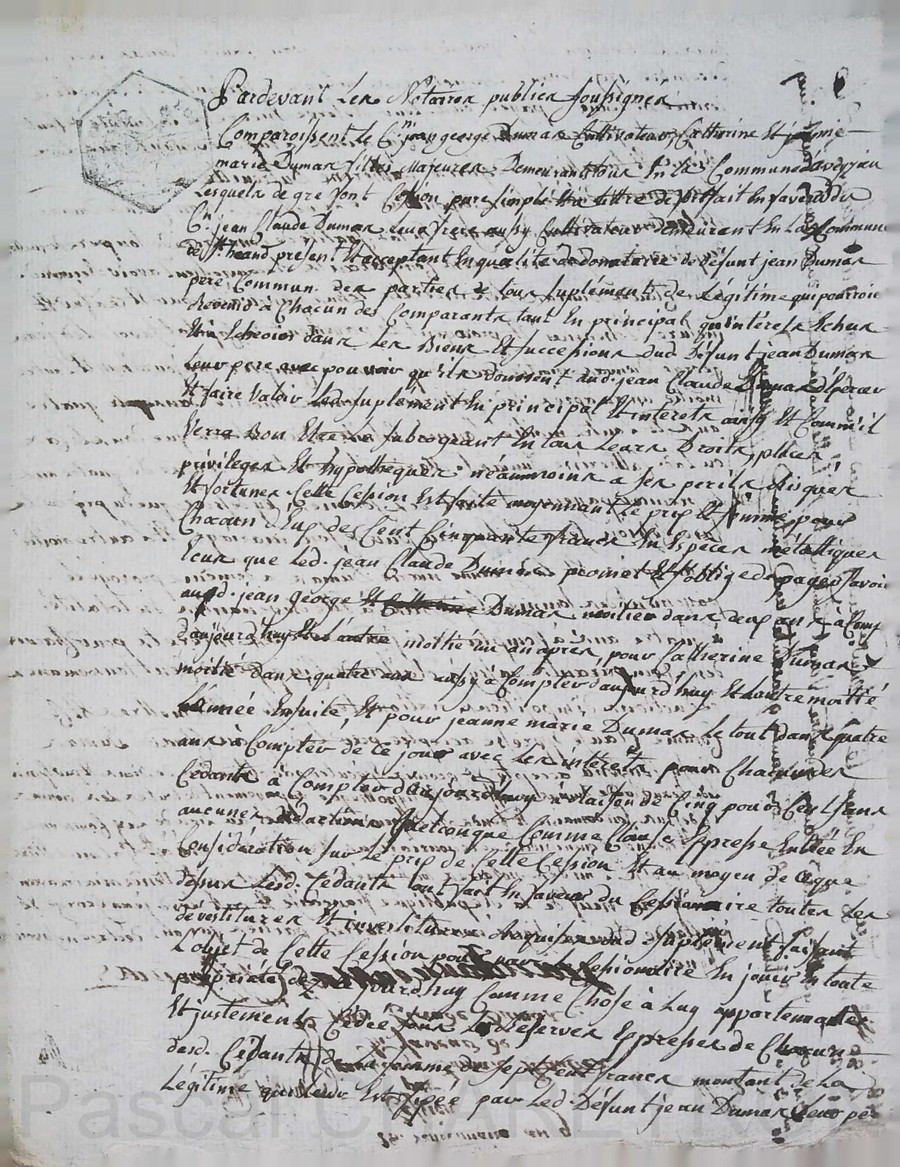 Pardevant Les Notaires publics soussignés
Comparoissent le C.n jean george Dumas Cultivateur, Catherine Et jeanne
marie Dumas filles Majeures Demeurants tous En La Commune
Lesquels de gré font Cession pure simple Et a tittre de forfait En faveur du
C.n jean Claude Dumas Leur frere aussy Cultivateur Demeurant En La Commune
de St. heand présent Et acceptant En qualité de donataire de défunt jean Dumas
père Commun des parties de tous suplements de Légitime qui pourroient
Revenir à Chacun des Comparants tant En principal qu'intérets Echus
Et a Echeoir dans Les Biens Et successions dud. Défunt jean Dumas
Leur pere avec pouvoir qu'ils donnent aud. jean Claude Dumas d'operer
Et faire Valoir Led. suplement En principal Et interets ainsy Et Comme il
Verra Bon Etre Le subrogeant En tous Leurs Droits, places
privileges Et hypotheques néanmoins a ses perils risques
Et fortunes Cette Cession Est faite moyennant Le prix Et somme pour
Chacun d'Eux de Cent Cinquante francs En Especes métalliques
Ceux que Led. jean Claude Dumas promet Et s'oblige de payer savoir
aud. jean George Et Catherine Dumas moitier dans deux ans à Compter
d'aujourd'huy Et L'autre moitié un an après, pour Catherine Dumas
moitié dans quatre ans aussy à Compter d'aujourd'huy Et L'autre moitié
L'année Ensuite, Et pour jeanne marie Dumas Le tout dans quatre
ans a Compter de Ce jour avec Les intérets pour Chacun des
Cédants à Compter d'aujourd'huy à raison de Cinq pour Cent sans
aucunes Réductions quelconque Comme Clause Expresse Entrée En
Considération sur Le prix de Cette Cession Et au moyen de Ceque
dessus Lesd. Cédants Font En faveur du Cessionnaire toutes Les
devestitures Et investitures Requises dud. suplement faisant
L'objet de Cette Cession pour par Le Cessionnaire En jouir En toute
propriété de jourd'huy Comme Chose à Luy appartenante
Et justement Cedée sous La Reserves Expresses de Chacuns
desd. Cédants de La somme de sept Cent francs montant de La
Légitime qui Leur Est fixée par Led. Défunt jean Dumas Leur père
Pascal